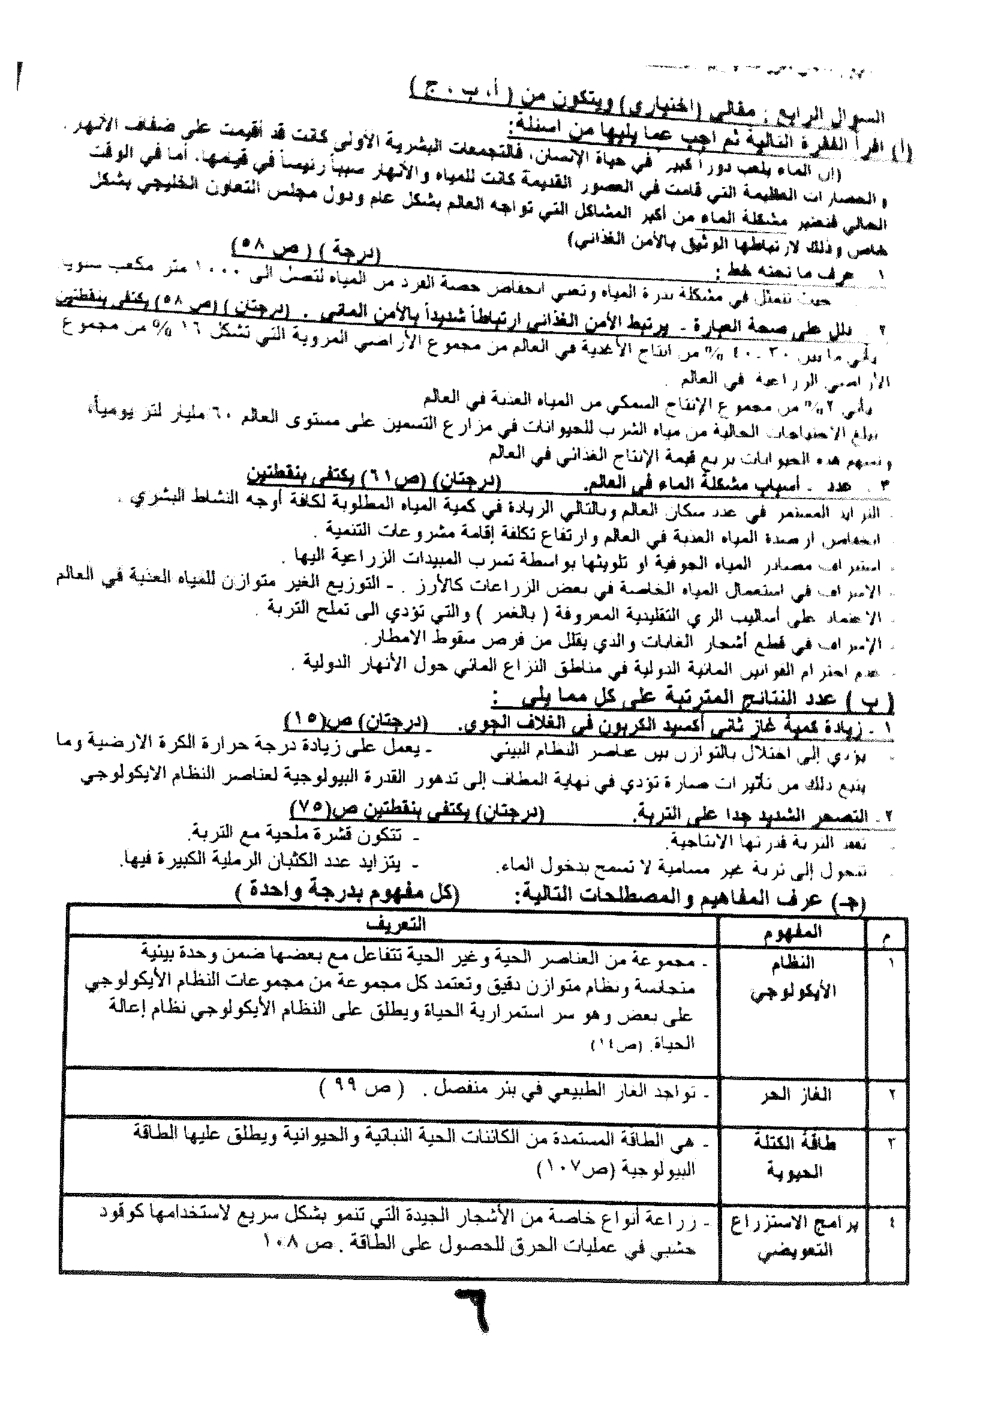 السؤال الرابع : مقالي (اختياري) ويتكون من ( أ، ب ، ج )
(أ) اقرأ الفقرة التالية ثم اجب عما يليها من اسئلة:
(إن الماء يلعب دوراً كبيراً في حياة الإنسان، فالتجمعات البشرية الأولى كانت قد أقيمت على ضفاف الأنهر .
والحضارات العظيمة التي قامت في العصور القديمة كانت للمياه والأنهار سبباً رئيساً في قيامها، أما في الوقت
الحالي فتعتبر مشكلة الماء من أكبر المشاكل التي تواجه العالم بشكل عام ودول مجلس التعاون الخليجي بشكل
خاص وذلك لارتباطها الوثيق بالأمن الغذائي)
١ - عرف ما تحته خط : (درجة ) ( ص ٥٨)
حيث تتمثل في مشكلة ندرة المياه وتعني انخفاض حصة الفرد من المياه لتصل الى ١٠٠٠ متر مكعب سنويا
٢ - دلل على صحة العبارة - يرتبط الأمن الغذائي ارتباطاً شديداً بالأمن المائي . (درجتان ) (ص ٥٨) يكتفى بنقطتين
يأتي ما بين ٣٠ - ٤٠ % من انتاج الأغذية في العالم من مجموع الأراضي المروية التي تشكل ١٦ % من مجموع
الأراضي الزراعية في العالم .
يأتي ٢% من مجموع الإنتاج السمكي من المياه العذبة في العالم
تبلغ الاحتياجات الحالية من مياه الشرب للحيوانات في مزارع التسمين على مستوى العالم ٦٠ مليار لتر يومياً،
وتسهم هذه الحيوانات بربع قيمة الإنتاج الغذائي في العالم
٣ - عدد - أسباب مشكلة الماء في العالم. (درجتان) (ص ٦١) يكتفى بنقطتين
- التزايد المستمر في عدد سكان العالم وبالتالي الزيادة في كمية المياه المطلوبة لكافة أوجه النشاط البشري .
- انخفاض ارصدة المياه العذبة في العالم وارتفاع تكلفة إقامة مشروعات التنمية .
- استنزاف مصادر المياه الجوفية او تلويثها بواسطة تسرب المبيدات الزراعية اليها .
- الاسراف في استعمال المياه الخاصة في بعض الزراعات كالأرز . - التوزيع الغير متوازن للمياه العذبة في العالم
- الاعتماد على أساليب الري التقليدية المعروفة ( بالغمر ) والتي تؤدي الى تملح التربة .
- الإسراف في قطع أشجار الغابات والذي يقلل من فرص سقوط الامطار.
- عدم احترام القوانين المائية الدولية في مناطق النزاع المائي حول الأنهار الدولية .
( ب ) عدد النتائج المترتبة على كل مما يلي :
١ - زيادة كمية غاز ثاني أكسيد الكربون في الغلاف الجوي. (درجتان) ص(١٥)
- يؤدي إلى اختلال بالتوازن بين عناصر النظام البيئي - يعمل على زيادة درجة حرارة الكرة الارضية وما
يتبع ذلك من تأثيرات ضارة تؤدي في نهاية المطاف إلى تدهور القدرة البيولوجية لعناصر النظام الايكولوجي
٢- التصحر الشديد جدا على التربة. (درجتان) يكتفى بنقطتين ص(٧٥)
- تفقد التربة قدرتها الانتاجية. - تتكون قشرة ملحية مع التربة.
- تتحول إلى تربة غير مسامية لا تسمح بدخول الماء. - يتزايد عدد الكثبان الرملية الكبيرة فيها.
(جـ) عرف المفاهيم والمصطلحات التالية: (كل مفهوم بدرجة واحدة )
م المفهوم التعريف
١ النظام الأيكولوجي - مجموعة من العناصر الحية وغير الحية تتفاعل مع بعضها ضمن وحدة بيئية
متجانسة ونظام متوازن دقيق وتعتمد كل مجموعة من مجموعات النظام الأيكولوجي
على بعض وهو سر استمرارية الحياة ويطلق على النظام الأيكولوجي نظام إعالة
الحياة. (ص١٤)
٢ الغاز الحر - تواجد الغاز الطبيعي في بئر منفصل . ( ص ٩٩ )
٣ طاقة الكتلة الحيوية - هي الطاقة المستمدة من الكائنات الحية النباتية والحيوانية ويطلق عليها الطاقة
البيولوجية (ص١٠٧)
٤ برامج الاستزراع التعويضي - زراعة أنواع خاصة من الأشجار الجيدة التي تنمو بشكل سريع لاستخدامها كوقود
خشبي في عمليات الحرق للحصول على الطاقة . ص ١٠٨
٦